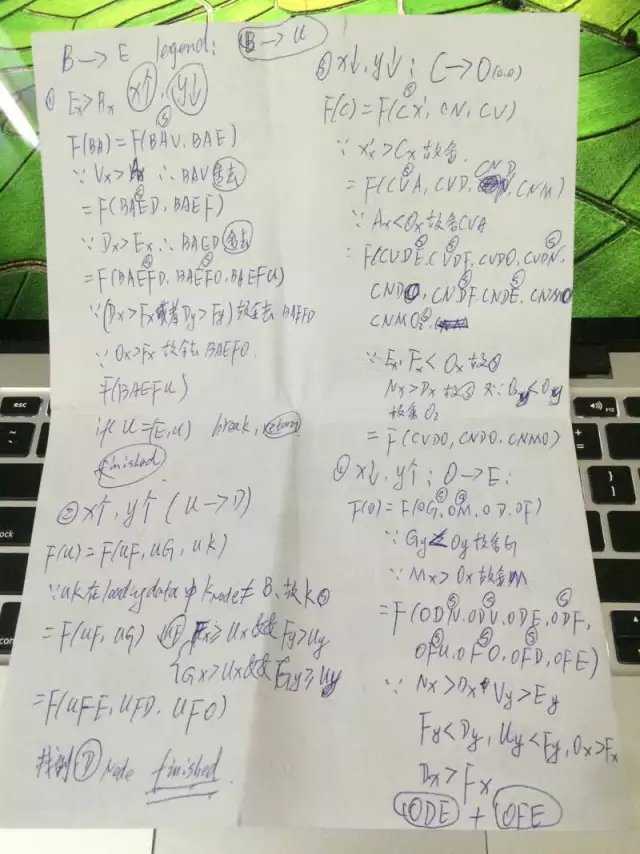 B → E legend: B → U
① Ex > Ax x↑, y↓
F(BA) = F(BAV, BAE)
∵ Vx > Ax ∴ BAV 舍去
= F(BAED, BAEF)
∵ Dx > Ex, ∴ BAED 舍去
= F(BAEFD, BAEFO, BAEFU)
∵ (Dx > Fx 或者 Dy > Fy) 故舍去 BAEFD
∵ Ox > Fx 故舍去 BAEFO.
F(BAEFU)
if U = (E, U) break, return
finished
② x↑, y↑ (U → D)
F(U) = F(UF, UG, UK)
∵ UK 在 loadingdata 中 K node ≠ B, 故 K
= F(UF, UG) Fx > Ux && Fy > Uy
Gx > Ux && Gy > Uy
= F(UFE, UFD, UFO)
找到 D Node finished
③ x↓, y↓: C → O(0,0)
F(C) = F(CX, CN, CV)
∵ Xx > Cx 故舍.
= F(CVA, CVD, CND, CNM)
∵ Ax < Ox 故舍 CVA
= F(CVDE, CVDF, CVDO, CVDN,
CNDO, CNDF, CNDE, CNMO
CNMO2
∵ Ex, Fx < Ox 故
Nx > Dx 故 又∵ O2y < Oy
故舍 O2
= F(CVDO, CNDO, CNMO)
④ x↓, y↑: O → E:
F(O) = F(OG, OM, OD, OF)
∵ Gy < Oy 故舍 G
∵ Mx > Ox 故舍 M
= F(ODN, ODV, ODE, ODF,
OFU, OFO, OFD, OFE)
∵ Nx > Dx, Vy > Ey
Fy < Dy, Uy < Fy, Ox > Fx
Dx > Fx
ODE + OFE
esc